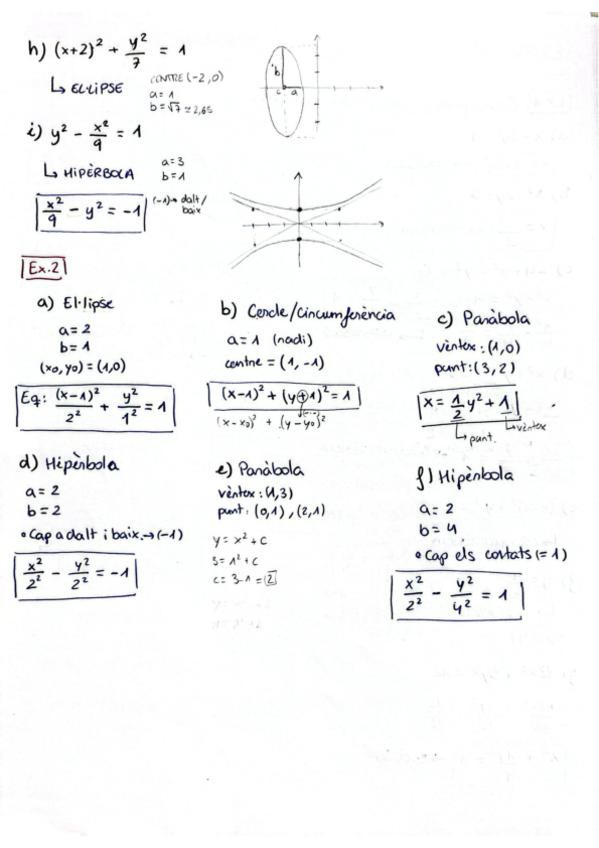 h) (x+2)² + y²/7 = 1
↳ EL·LIPSE
CENTRE (-2,0)
a = 1
b = √7 ≃ 2,65
b
c a
i) y² - x²/9 = 1
↳ HIPÈRBOLA
a=3
b=1
x²/9 - y² = -1
(-1)→ dalt/
baix
Ex.2
a) El·lipse
a = 2
b = 1
(x0, y0) = (1,0)
Eq: (x-1)²/2² + y²/1² = 1
b) Cercle/Circumferència
a = 1 (radi)
centre = (1, -1)
(x-1)² + (y+1)² = 1
(x-x0)² + (y-y0)²
c) Paràbola
vèrtex: (1,0)
punt: (3,2)
x = 1/2 y² + 1
↳ vèrtex
↳ punt.
d) Hipèrbola
a = 2
b = 2
• Cap a dalt i baix. → (-1)
x²/2² - y²/2² = -1
e) Paràbola
vèrtex: (1,3)
punt: (0,1), (2,1)
y = x² + c
3 = 1² + c
c = 3-1 = 2
f) Hipèrbola
a = 2
b = 4
• Cap els costats (= 1)
x²/2² - y²/4² = 1